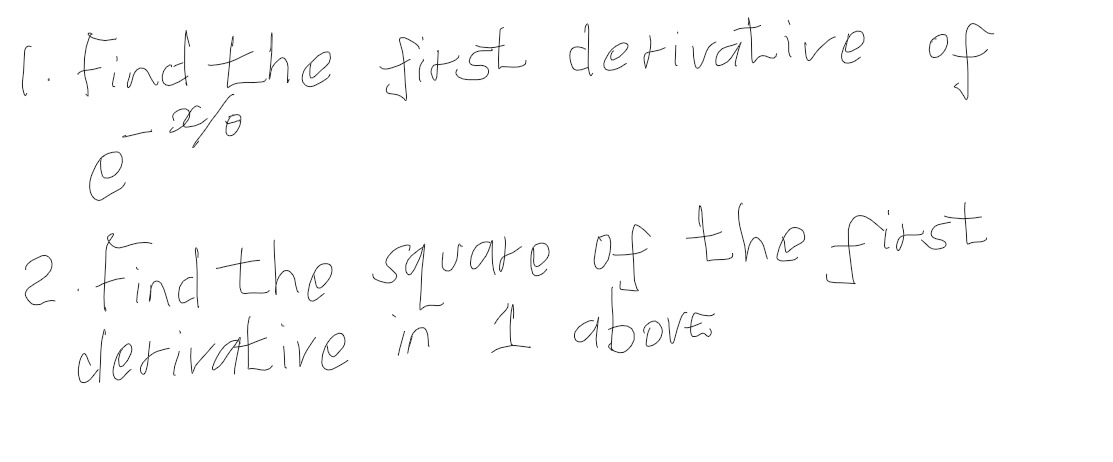 1. Find the first derivative of
e^{-x/θ}
2. Find the square of the first
derivative in 1 above